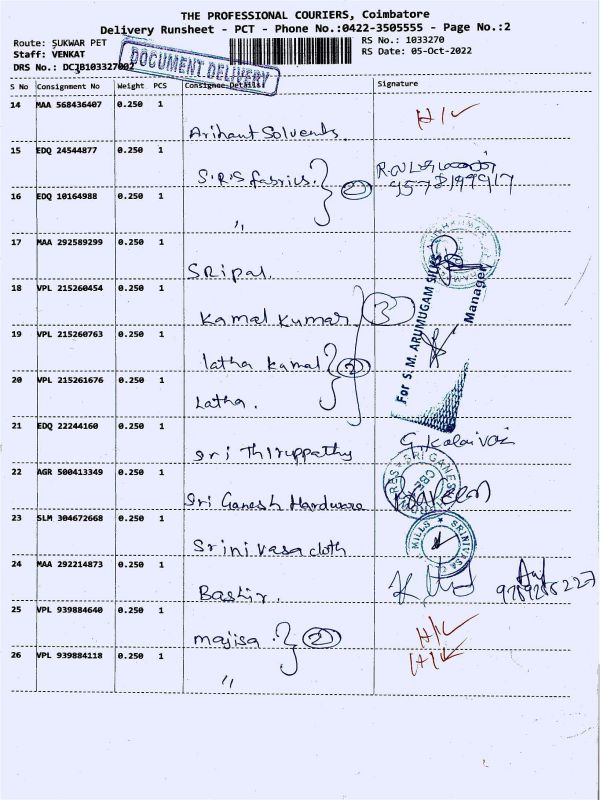 THE PROFESSIONAL COURIERS, Coimbatore
Delivery Runsheet - PCT - Phone No.:0422-3505555 - Page No.:2
Route: SUKWAR PET
RS No.: 1033270
Staff: VENKAT
RS Date: 05-Oct-2022
DRS No.: DCJB103327002
DOCUMENT DELIVERY
S No Consignment No Weight PCS Consignee Details Signature
14 MAA 568436407 0.250 1
Arihant Solvents. H/L
15 EDQ 24544877 0.250 1
S.R.S fabrics. 2
16 EDQ 10164988 0.250 1
"
17 MAA 292589299 0.250 1
SRipal.
18 VPL 215260454 0.250 1
Kamal Kumar. 3
For S. M. ARUMUGAM SILKS
Manager
19 VPL 215260763 0.250 1
latha kamal 2
20 VPL 215261676 0.250 1
Latha.
21 EDQ 22244160 0.250 1
Sri Thiruppathy G. Kalaivani
22 AGR 500413349 0.250 1
Sri Ganesh Hardware
SRI GANESH
CBE
23 SLM 304672668 0.250 1
Srinivasa cloth
MILLS ★ SRINIVASA
24 MAA 292214873 0.250 1
Bashir.
25 VPL 939884640 0.250 1
majisa. 2 H/L
26 VPL 939884118 0.250 1 H/L
"